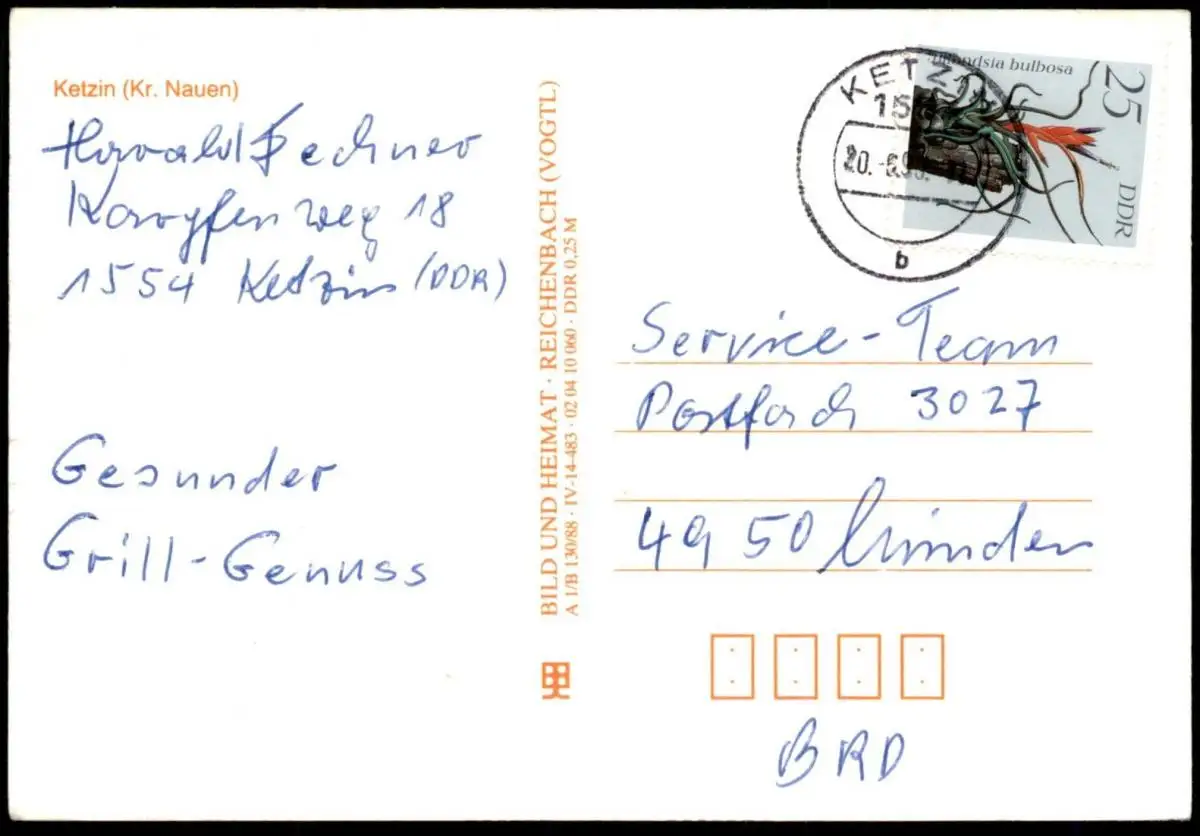 Ketzin (Kr. Nauen)
Harald Fechner
Karpfenweg 18
1554 Ketzin (DDR)
Gesunder
Grill-Genuss
BILD UND HEIMAT · REICHENBACH (VOGTL)
A 1/B 130/88 · IV-14-483 · 02 04 10 060 · DDR 0,25 M
KETZIN
20. -6.90.
b
Tillandsia bulbosa
25
DDR
Service-Team
Postfach 3027
4950 Minden
BRD